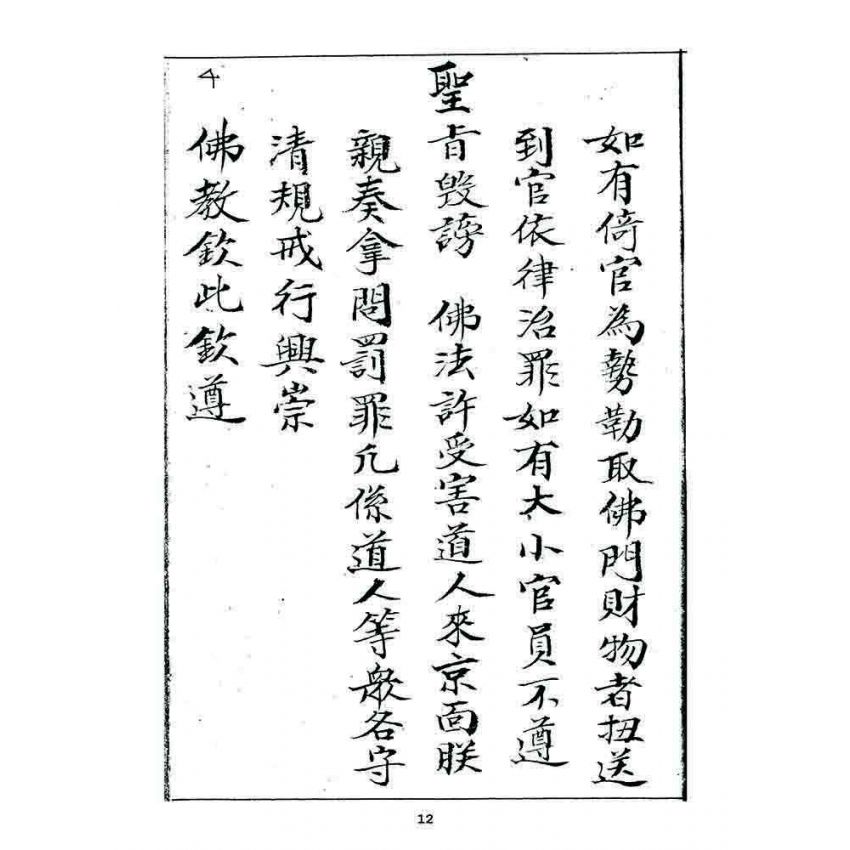 如有倚官為勢勒取佛門財物者扭送
到官依律治罪如有大小官員不遵
聖旨毀謗 佛法許受害道人來京面朕
親奏拿問罰罪凡係道人等衆各守
清規戒行興崇
佛教欽此欽遵
4
12